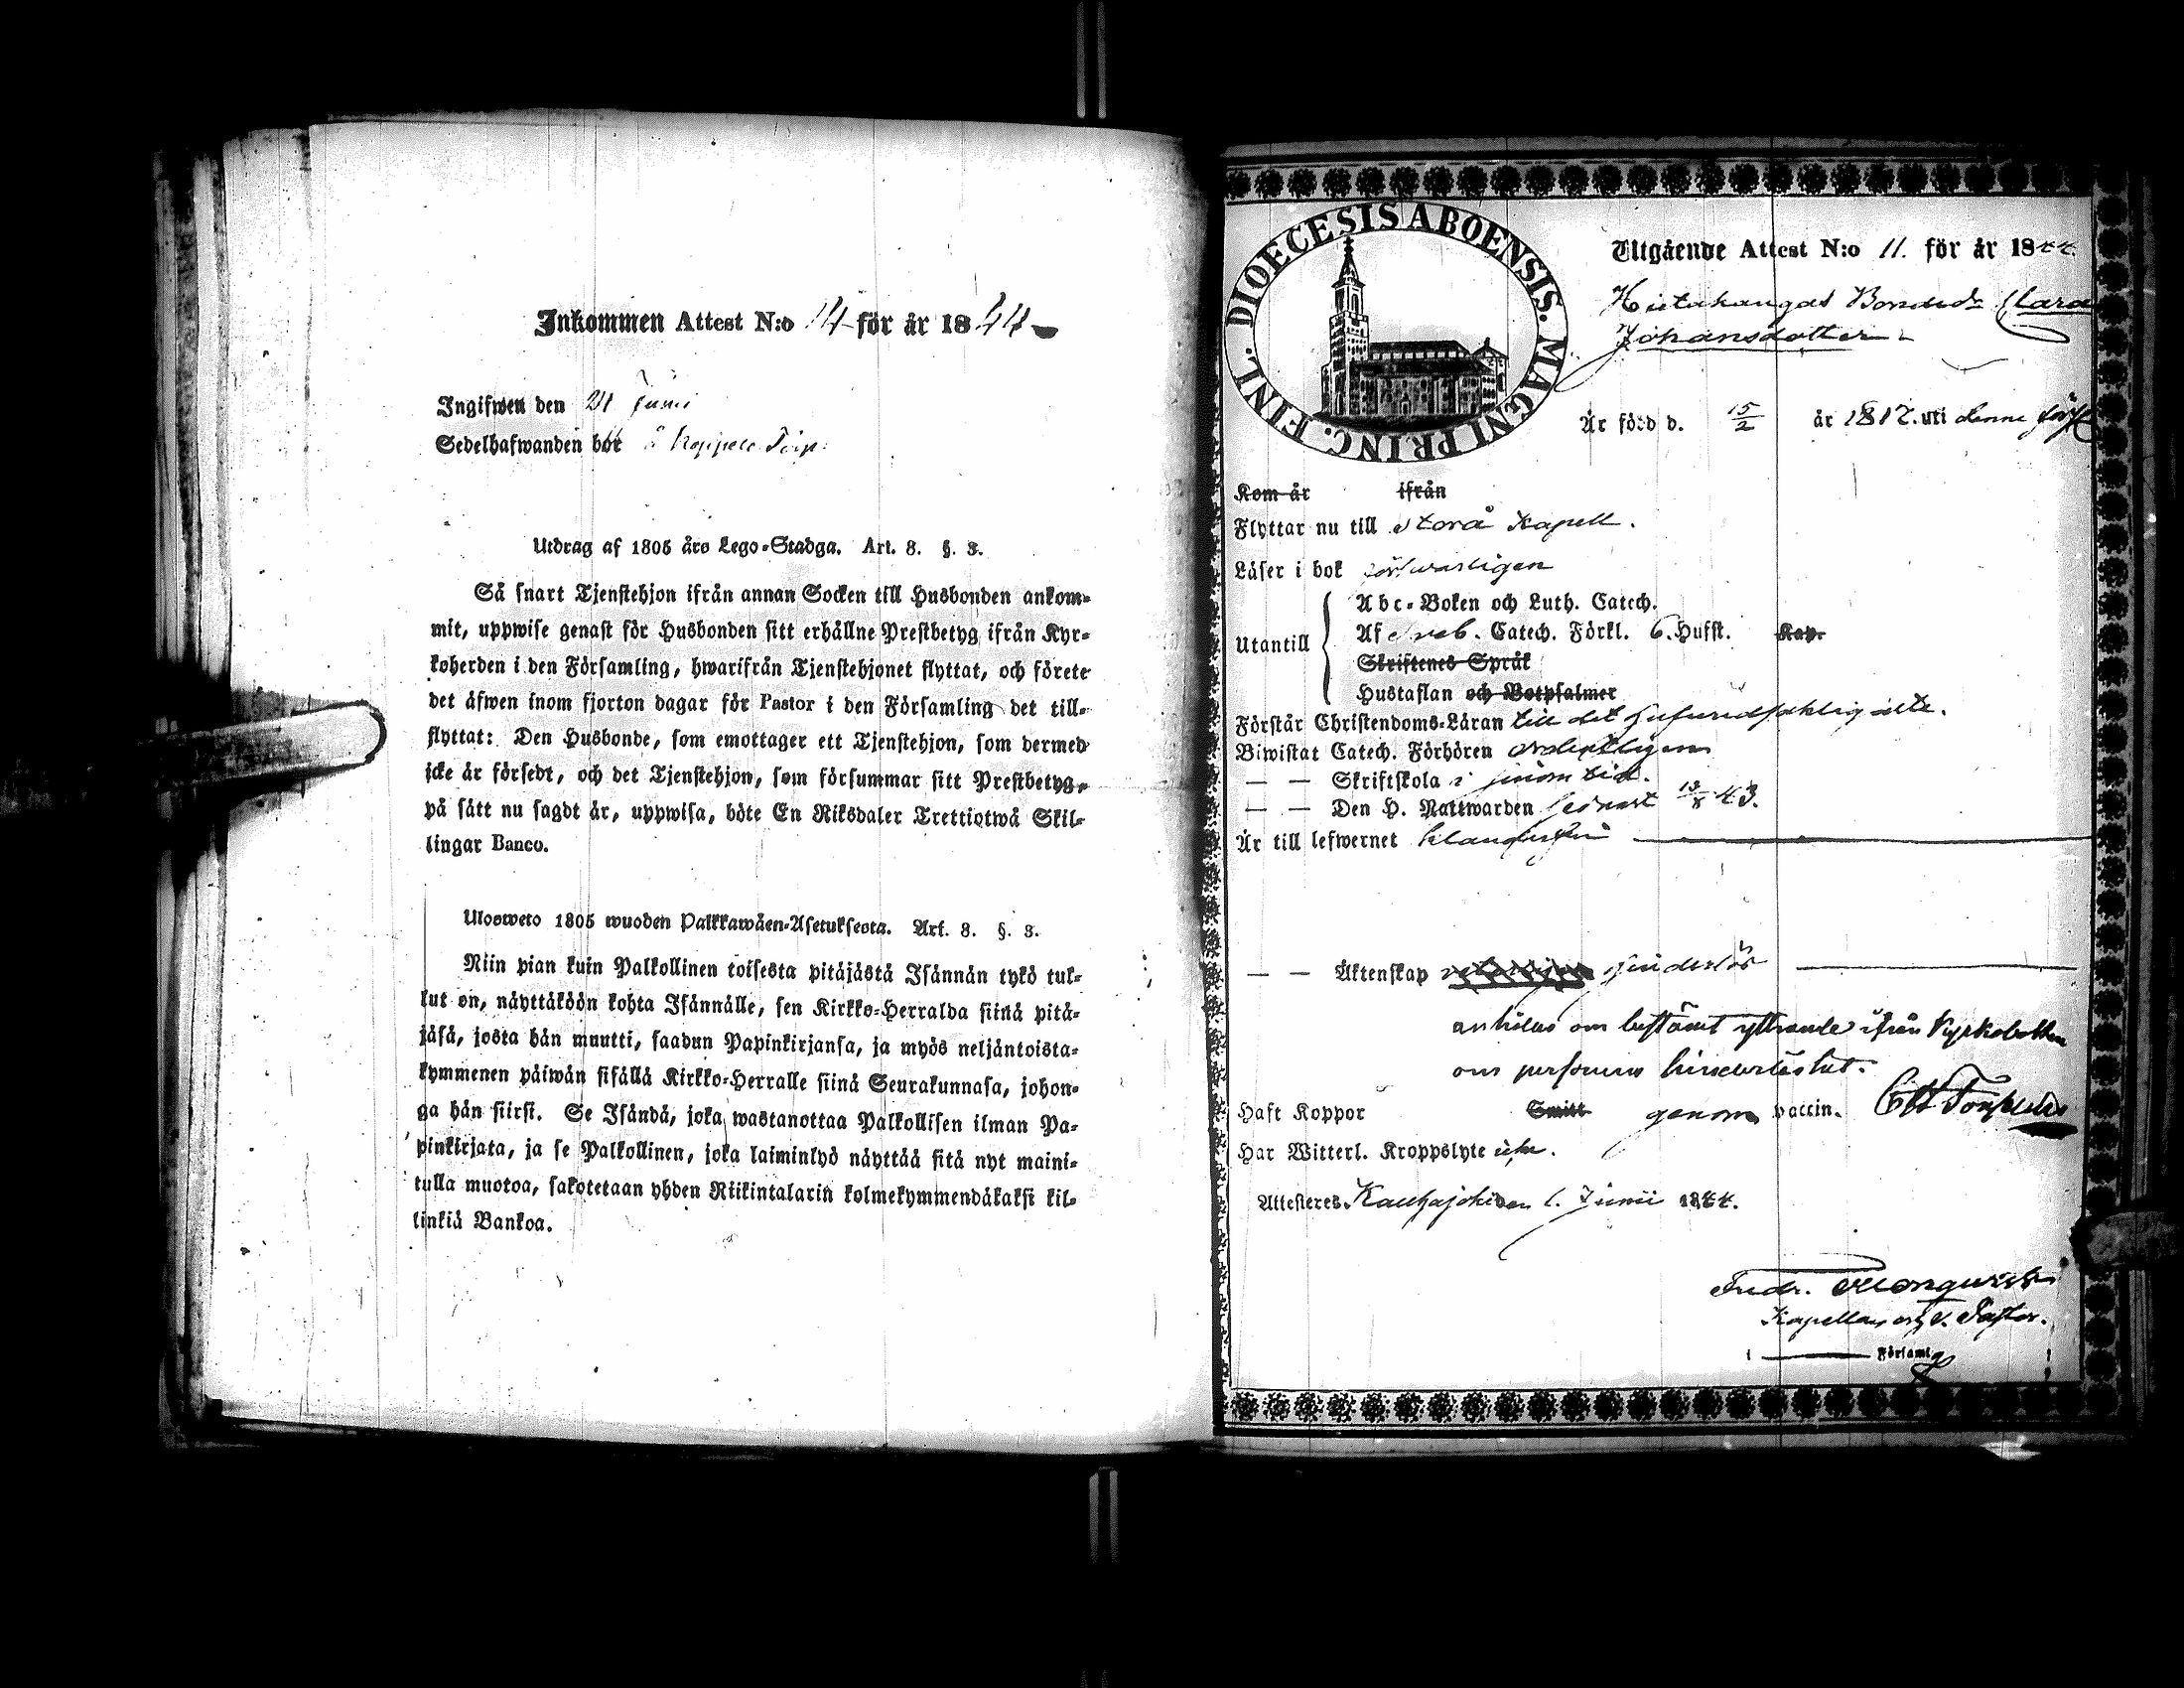 Inkommen Attest N:o 14 för år 1844
Ingifwen den 21 Junii
Sedelhafwanden bor å Koppelo Torp.
Utdrag af 1805 års Lego-Stadga. Art. 8. §. 3.
Så snart Tjenstehjon ifrån annan Socken till Husbonden ankom-
mit, uppwise genast för Husbonden sitt erhållne Prestbetyg ifrån Kyr-
koherden i den Församling, hwarifrån Tjenstehjonet flyttat, och förete
det äfwen inom fjorton dagar för Pastor i den Församling det till-
flyttat: Den Husbonde, som emottager ett Tjenstehjon, som dermed
icke är försedt, och det Tjenstehjon, som försummar sitt Prestbetyg,
på sätt nu sagdt är, uppwisa, böte En Riksdaler Trettiotwå Skil-
lingar Banco.
Ulosweto 1805 wuoden Palkkawäen-Asetuksesta. Art. 8. §. 3.
Niin pian kuin Palkollinen toisesta pitäjästä Isännän tykö tul-
lut on, näyttäköön kohta Isännälle, sen Kirkko-Herralda siinä pitä-
jäsä, josta hän muutti, saadun Papinkirjansa, ja myös neljäntoista-
kymmenen päiwän sisällä Kirkko-Herralle siinä Seurakunnasa, johon-
ga hän siirsi. Se Isändä, joka wastanottaa Palkollisen ilman Pa-
pinkirjata, ja se Palkollinen, joka laiminlyö näyttää sitä nyt maini-
tulla muotoa, sakotetaan yhden Riikintalarin kolmekymmendäkaksi kil-
linkiä Bankoa.
DIOECESIS ABOENSIS. MAGNI PRINC. FINL.
Utgående Attest N:o 11. för år 1844.
Hietakangas Bonded:r Clara
Johansdotter
Är född d. 15/2 år 1817. uti denne förs.
Kom år ifrån
Flyttar nu till Storå Kapell.
Läser i bok förswarligen
Utantill
Abc-Boken och Luth. Catech.
Af Sveb. Catech. Förkl. 6. Hufst. Kap.
Skriftenes Språk
Hustaflan och Botpsalmer
Förstår Christendoms-Läran till det
Biwistat Catech. Förhören ordentligen
— — Skriftskola i sinom tid.
— — Den H. Nattwarden sednast 13/8 43.
Är till lefwernet klanderfri
— — Äktenskap hinderlös
anhålas om bestämt yttrande ifrån Kyrkoboken
om personens hinderlöshet.
Haft Koppor Smitt genom vaccin.
Har Witterl. Kroppslyte utan.
Attesteres. Kauhajoki den 1. Junii 1844.
Kapellan och v. Pastor.
i Församlg